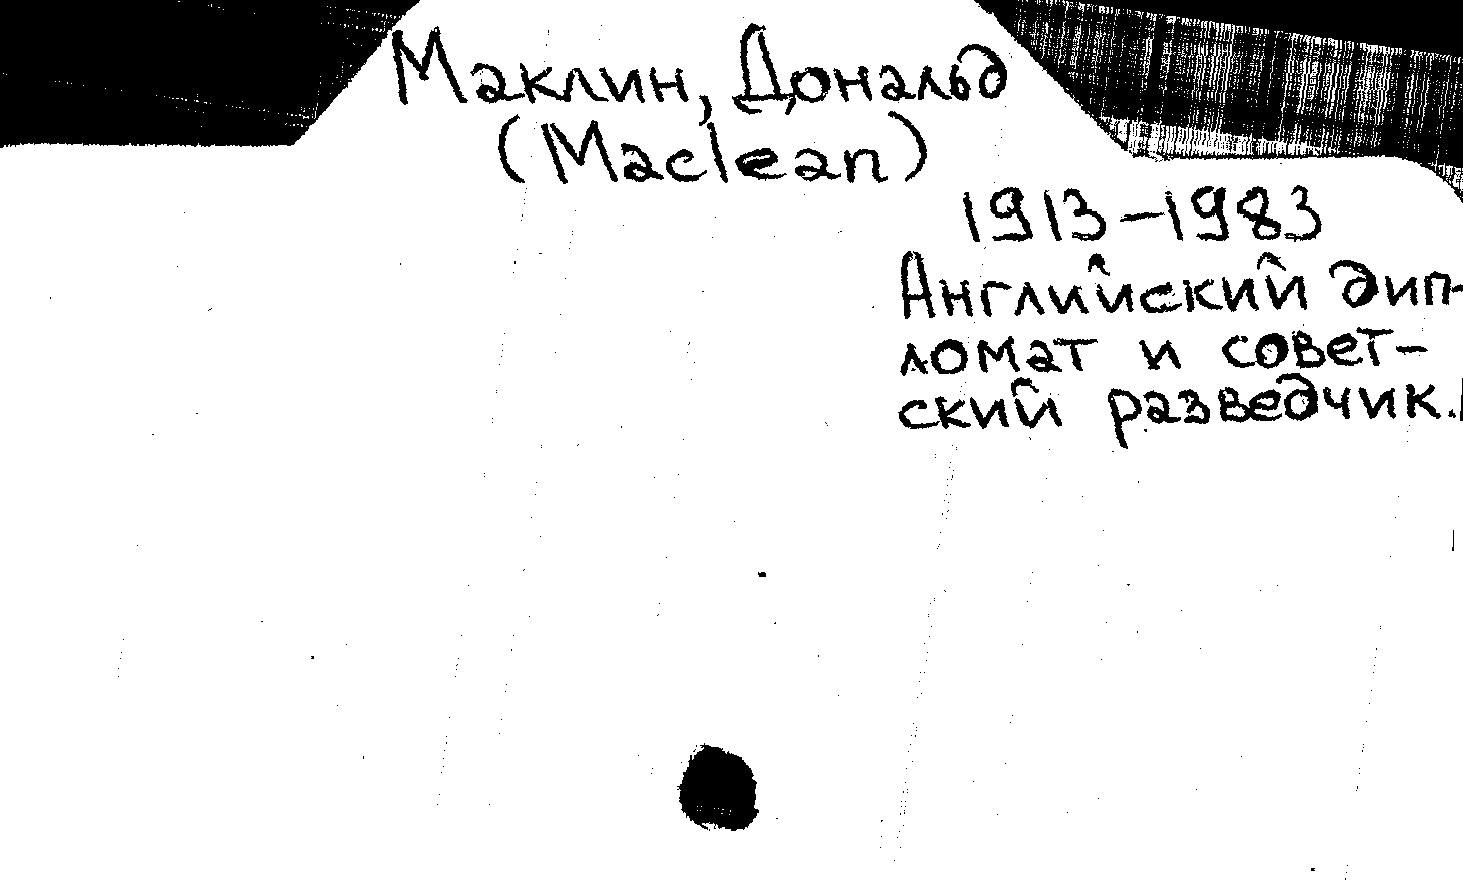 Маклин, Дональд
(Maclean)
1913–1983
Английский дип-
ломат и совет-
ский разведчик.